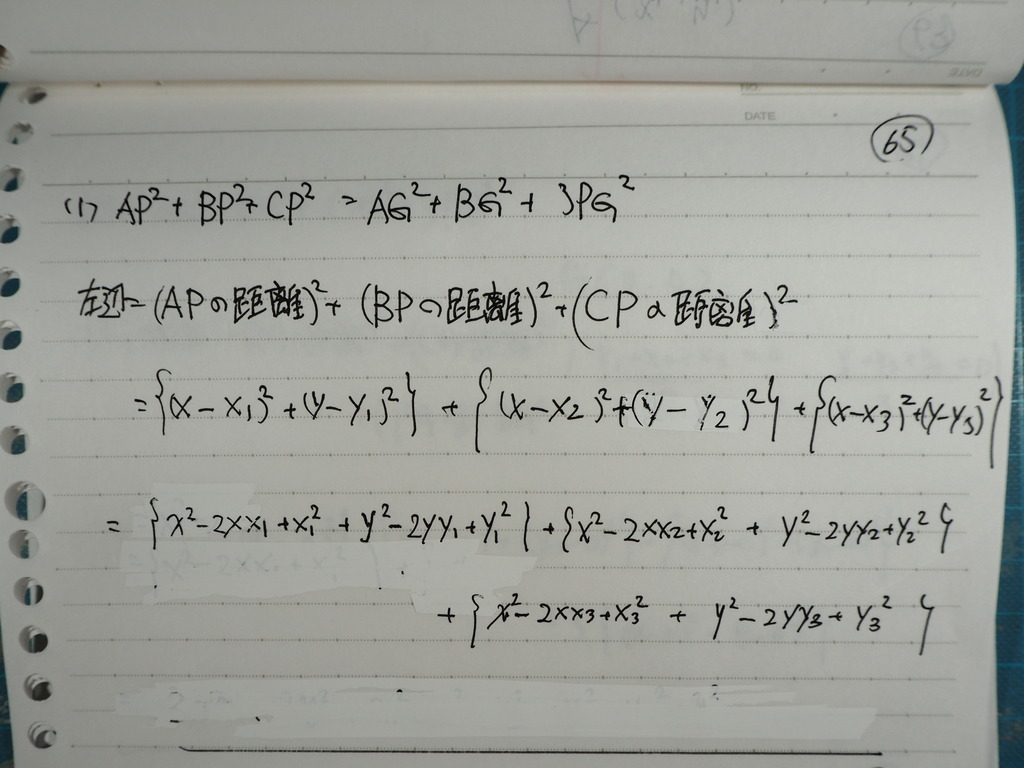 65
NO.
DATE
(1) AP²+ BP²+ CP² = AG²+ BG²+ 3PG²
左辺=(APの距離)²+ (BPの距離)²+(CPの距離)²
={(x-x₁)²+(y-y₁)²} + {(x-x₂)²+(y-y₂)²} +{(x-x₃)²+(y-y₃)²}
= {x²-2xx₁+x₁²+y²-2yy₁+y₁²}+{x²-2xx₂+x₂² + y²-2yy₂+y₂²}
+ {x²-2xx₃+x₃² + y²-2yy₃+y₃²}